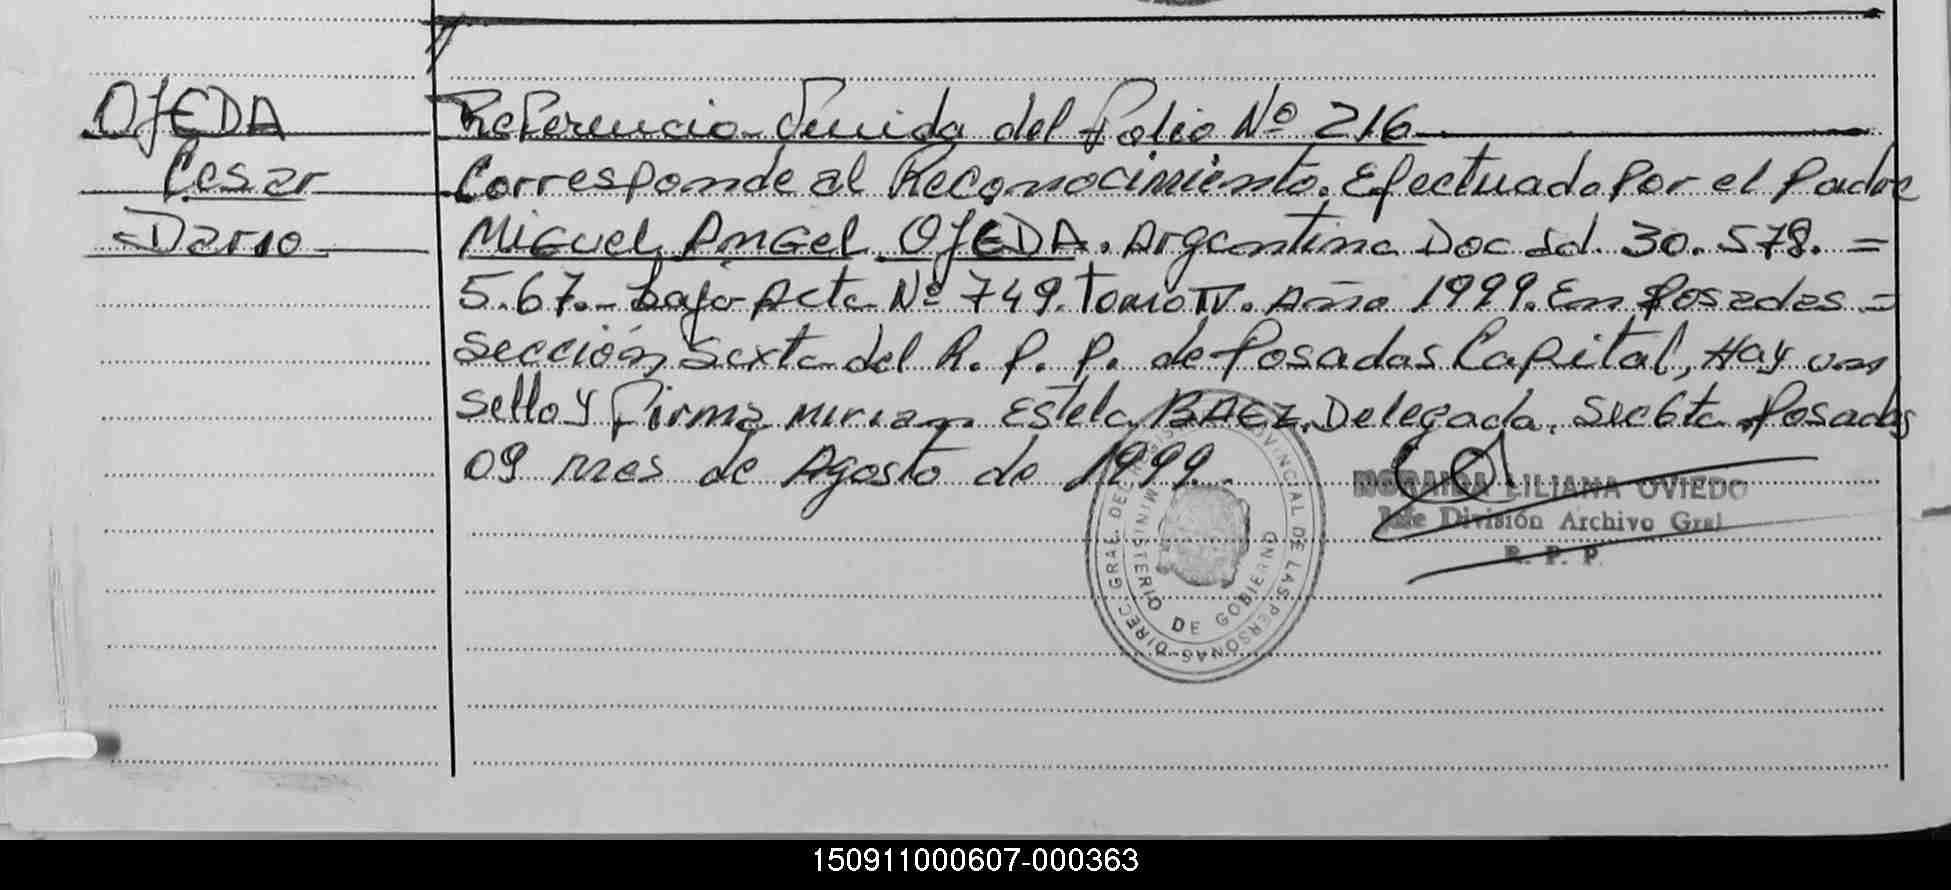 OJEDA
Cesar
Dario
Referencia Venida del Folio Nº 216
Corresponde al Reconocimiento. Efectuado Por el Padre
Miguel Angel OJEDA. Argentino Doc Id. 30.578.=
5.67.- bajo Acta Nº 749. Tomo IV. Año 1999. En Posadas =
Sección Sexta del R. P. P. de Posadas Capital, Hay un
sello y Firma Mirian Estela BAEZ. Delegada. Sec 6ta Posadas
09 mes de Agosto de 1999.
DIREC GRAL DEL REGISTRO PROVINCIAL DE LAS PERSONAS
MINISTERIO DE GOBIERNO
NORAIDA LILIANA OVIEDO
Jefe División Archivo Gral
R. P. P.
150911000607-000363